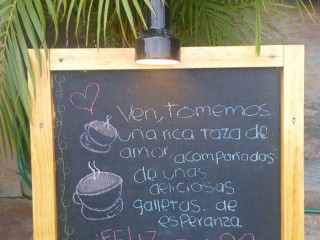 Ven, tomemos
una rica taza de
amor, acompañadas
de unas
deliciosas
galletas. de
esperanza.
¡FELIZ